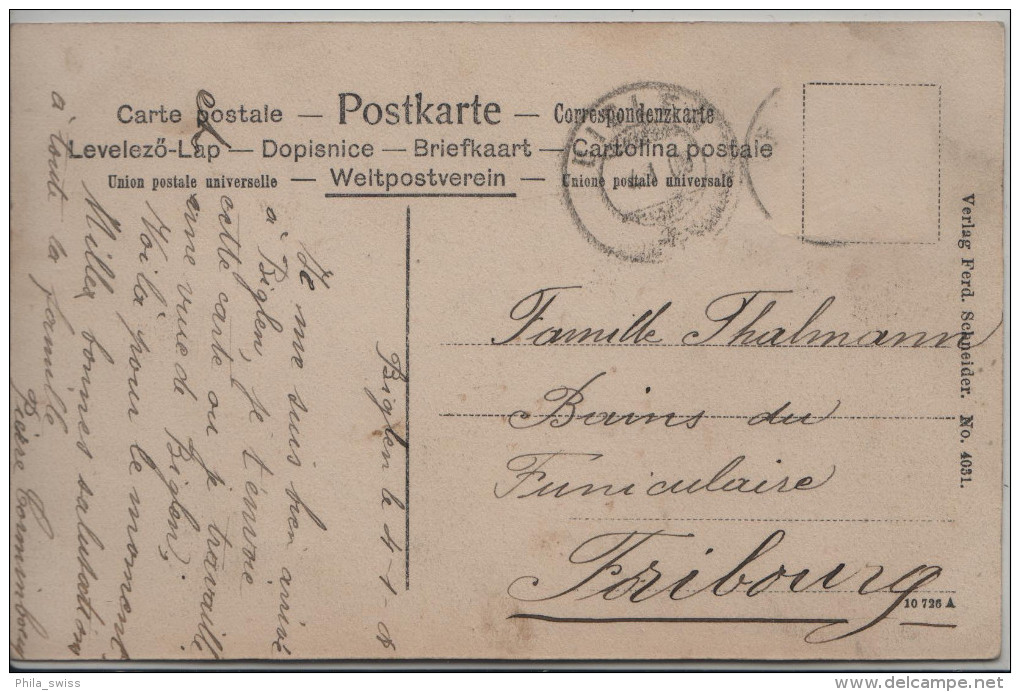 Carte postale — Postkarte — Correspondenzkarte
Levelező-Lap — Dopisnice — Briefkaart — Cartolina postale
Union postale universelle — Weltpostverein — Unione postale universale
Biglen le 4-1-8
Je me suis bien arrivé
à Biglen, je t'envoie
cette carte ou je travaille
une vue de Biglen;
Voilà pour le moment
Milles bonnes salutations
à toute la famille
Pierre Corminboeuf
Famille Thalmann
Bains du
Funiculaire
Fribourg
Verlag Ferd. Schneider. No. 4031.
10 726 A
Phila_swiss
delcampe.net